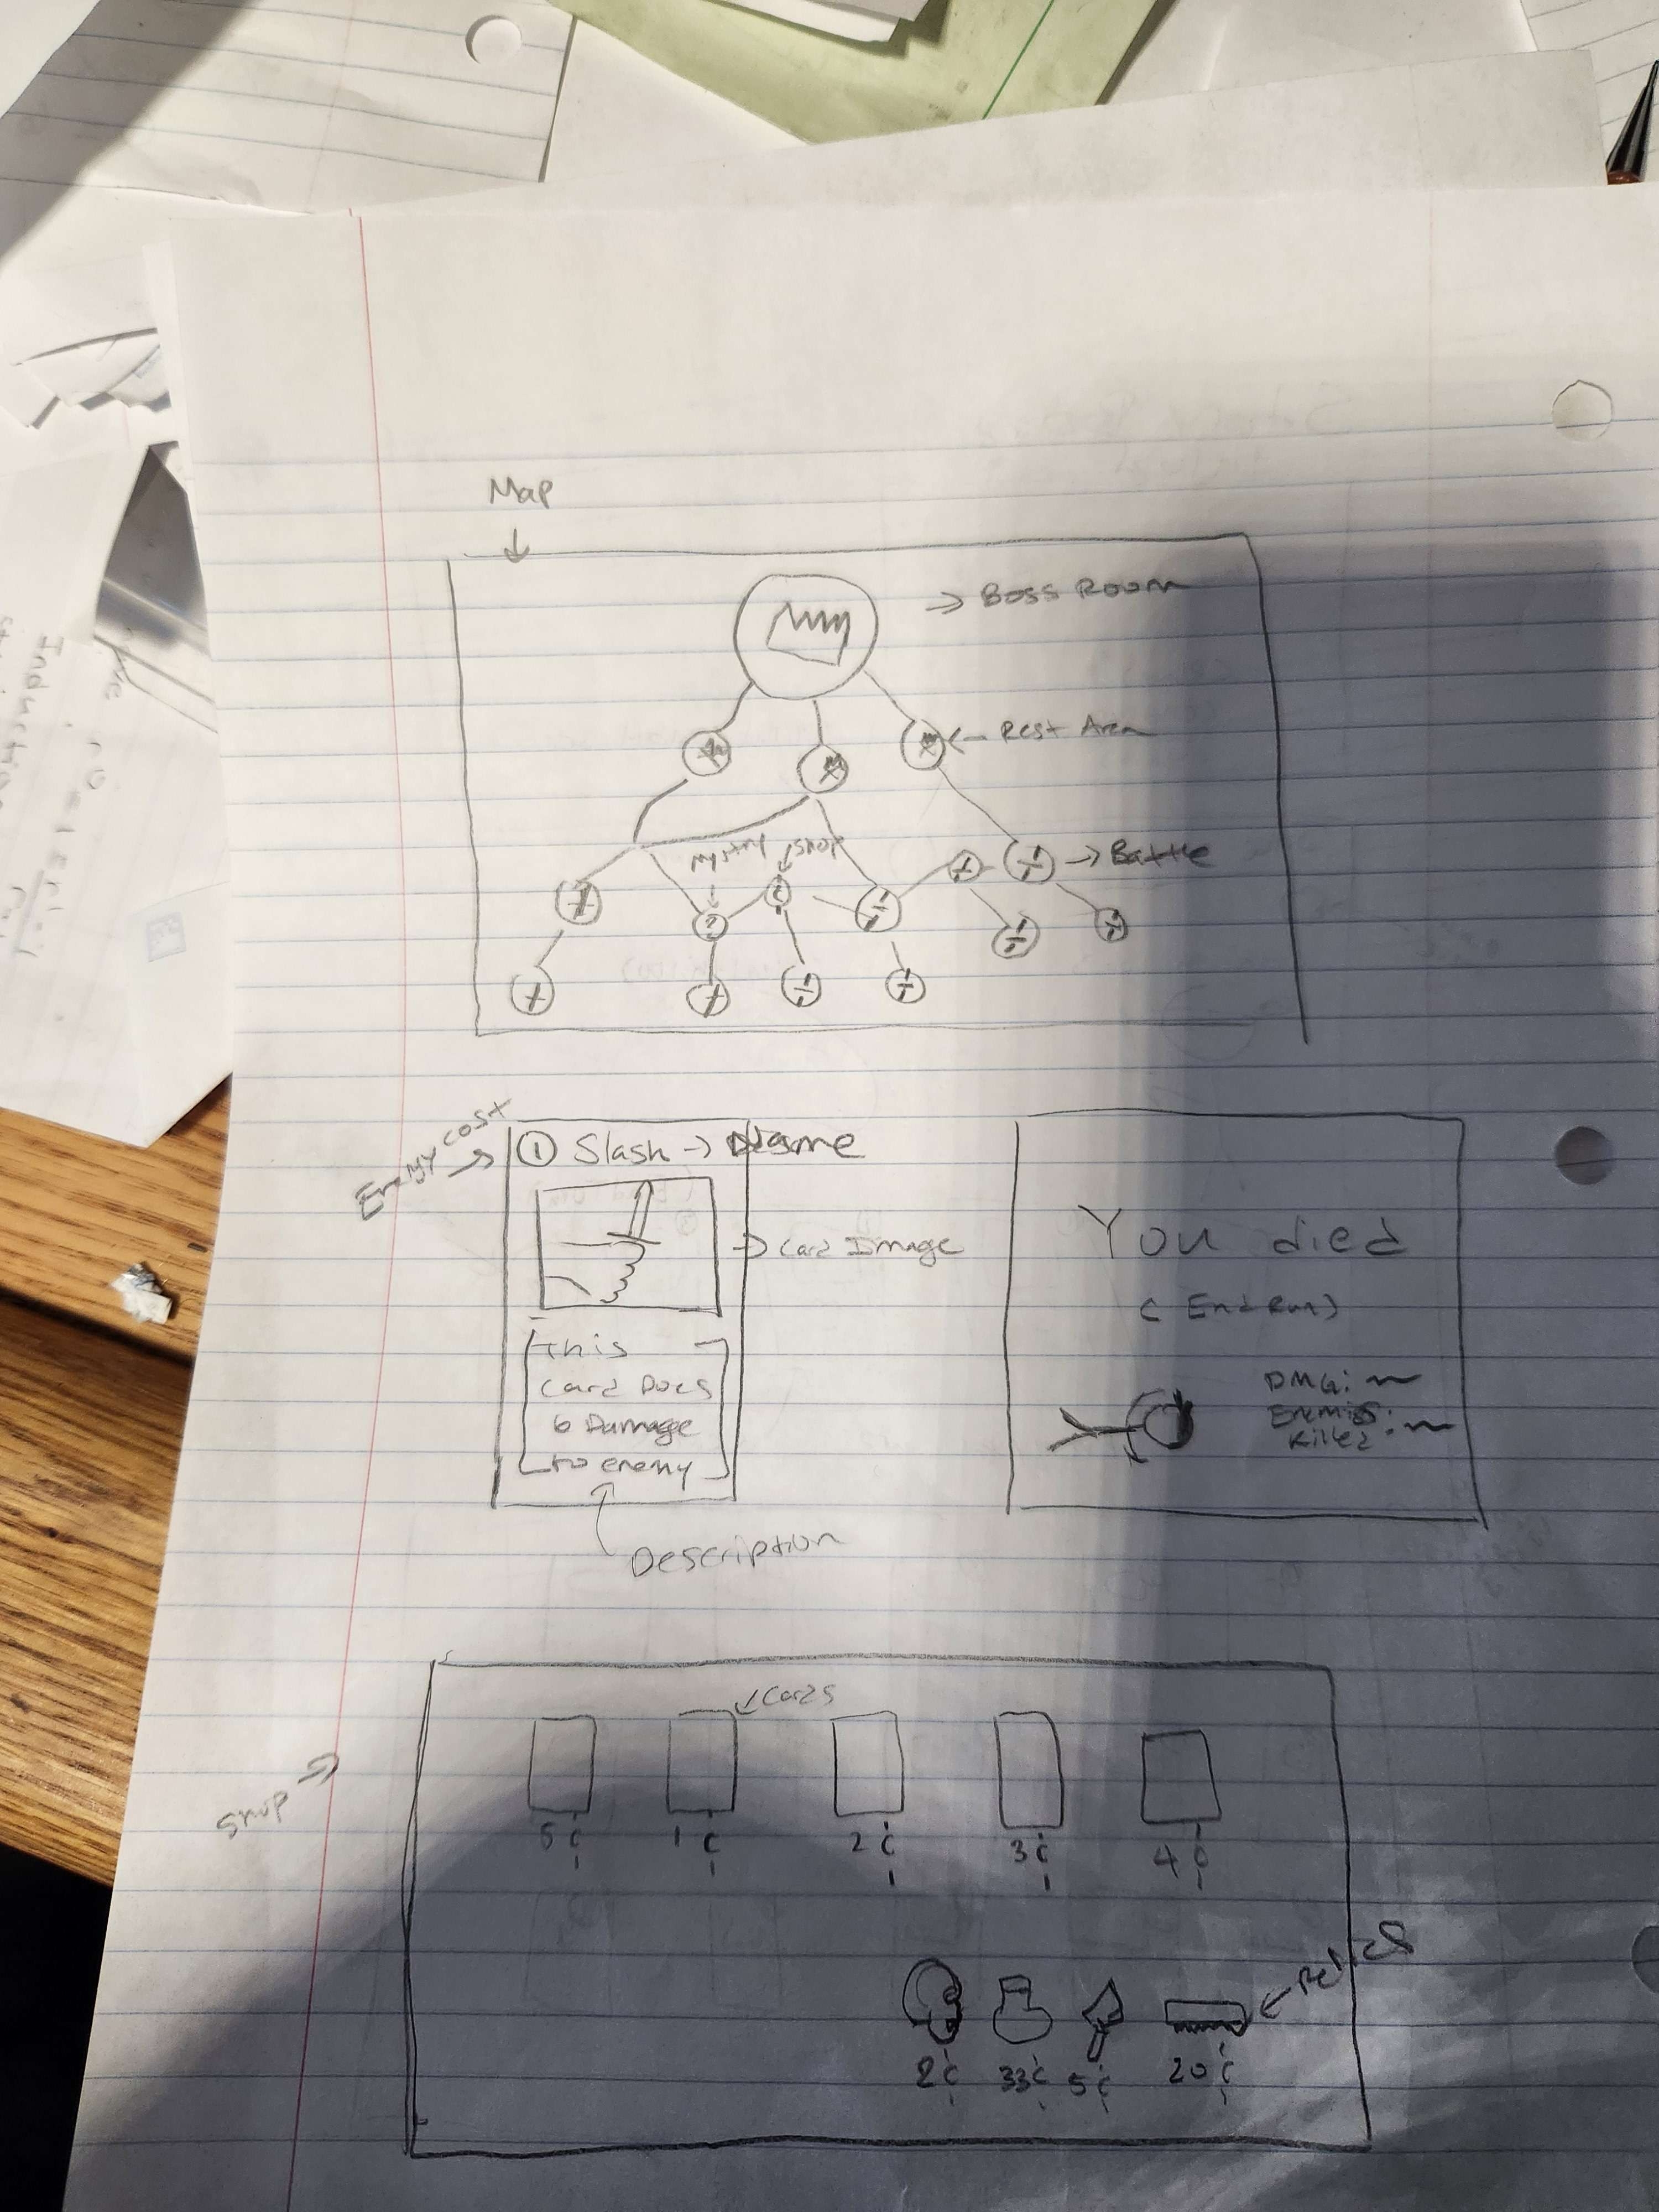 Map
→ Boss Room
← Rest Area
Mystry
Shop
→ Battle
?
Energy cost
① Slash → Name
→ Card Image
This
Card Does
6 Damage
to enemy
Description
You died
(End Run)
DMG:
Enemies
Killed:
Shop →
Cards
5¢
1¢
2¢
3¢
4¢
Relics
2¢
33¢
5¢
20¢
Inductive